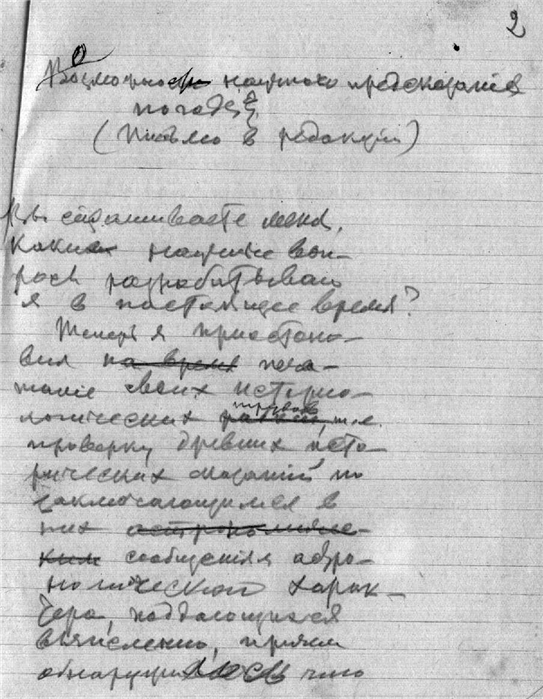 2
О
Возможность научного предсказания
погоды
(Письмо в редакцию)
Вы спрашиваете меня,
какие научные воп-
росы разрабатываю
я в настоящее время?
Теперь я приостано-
вил на время печа-
тание своих историо-
логических работ трудов, т. е.
проверку древних исто-
рических сказаний по
заключающимся в
них астрономичес-
ким сообщениям астро-
номического харак-
тера, поддающимся
вычислению, причем
обнаружилось что